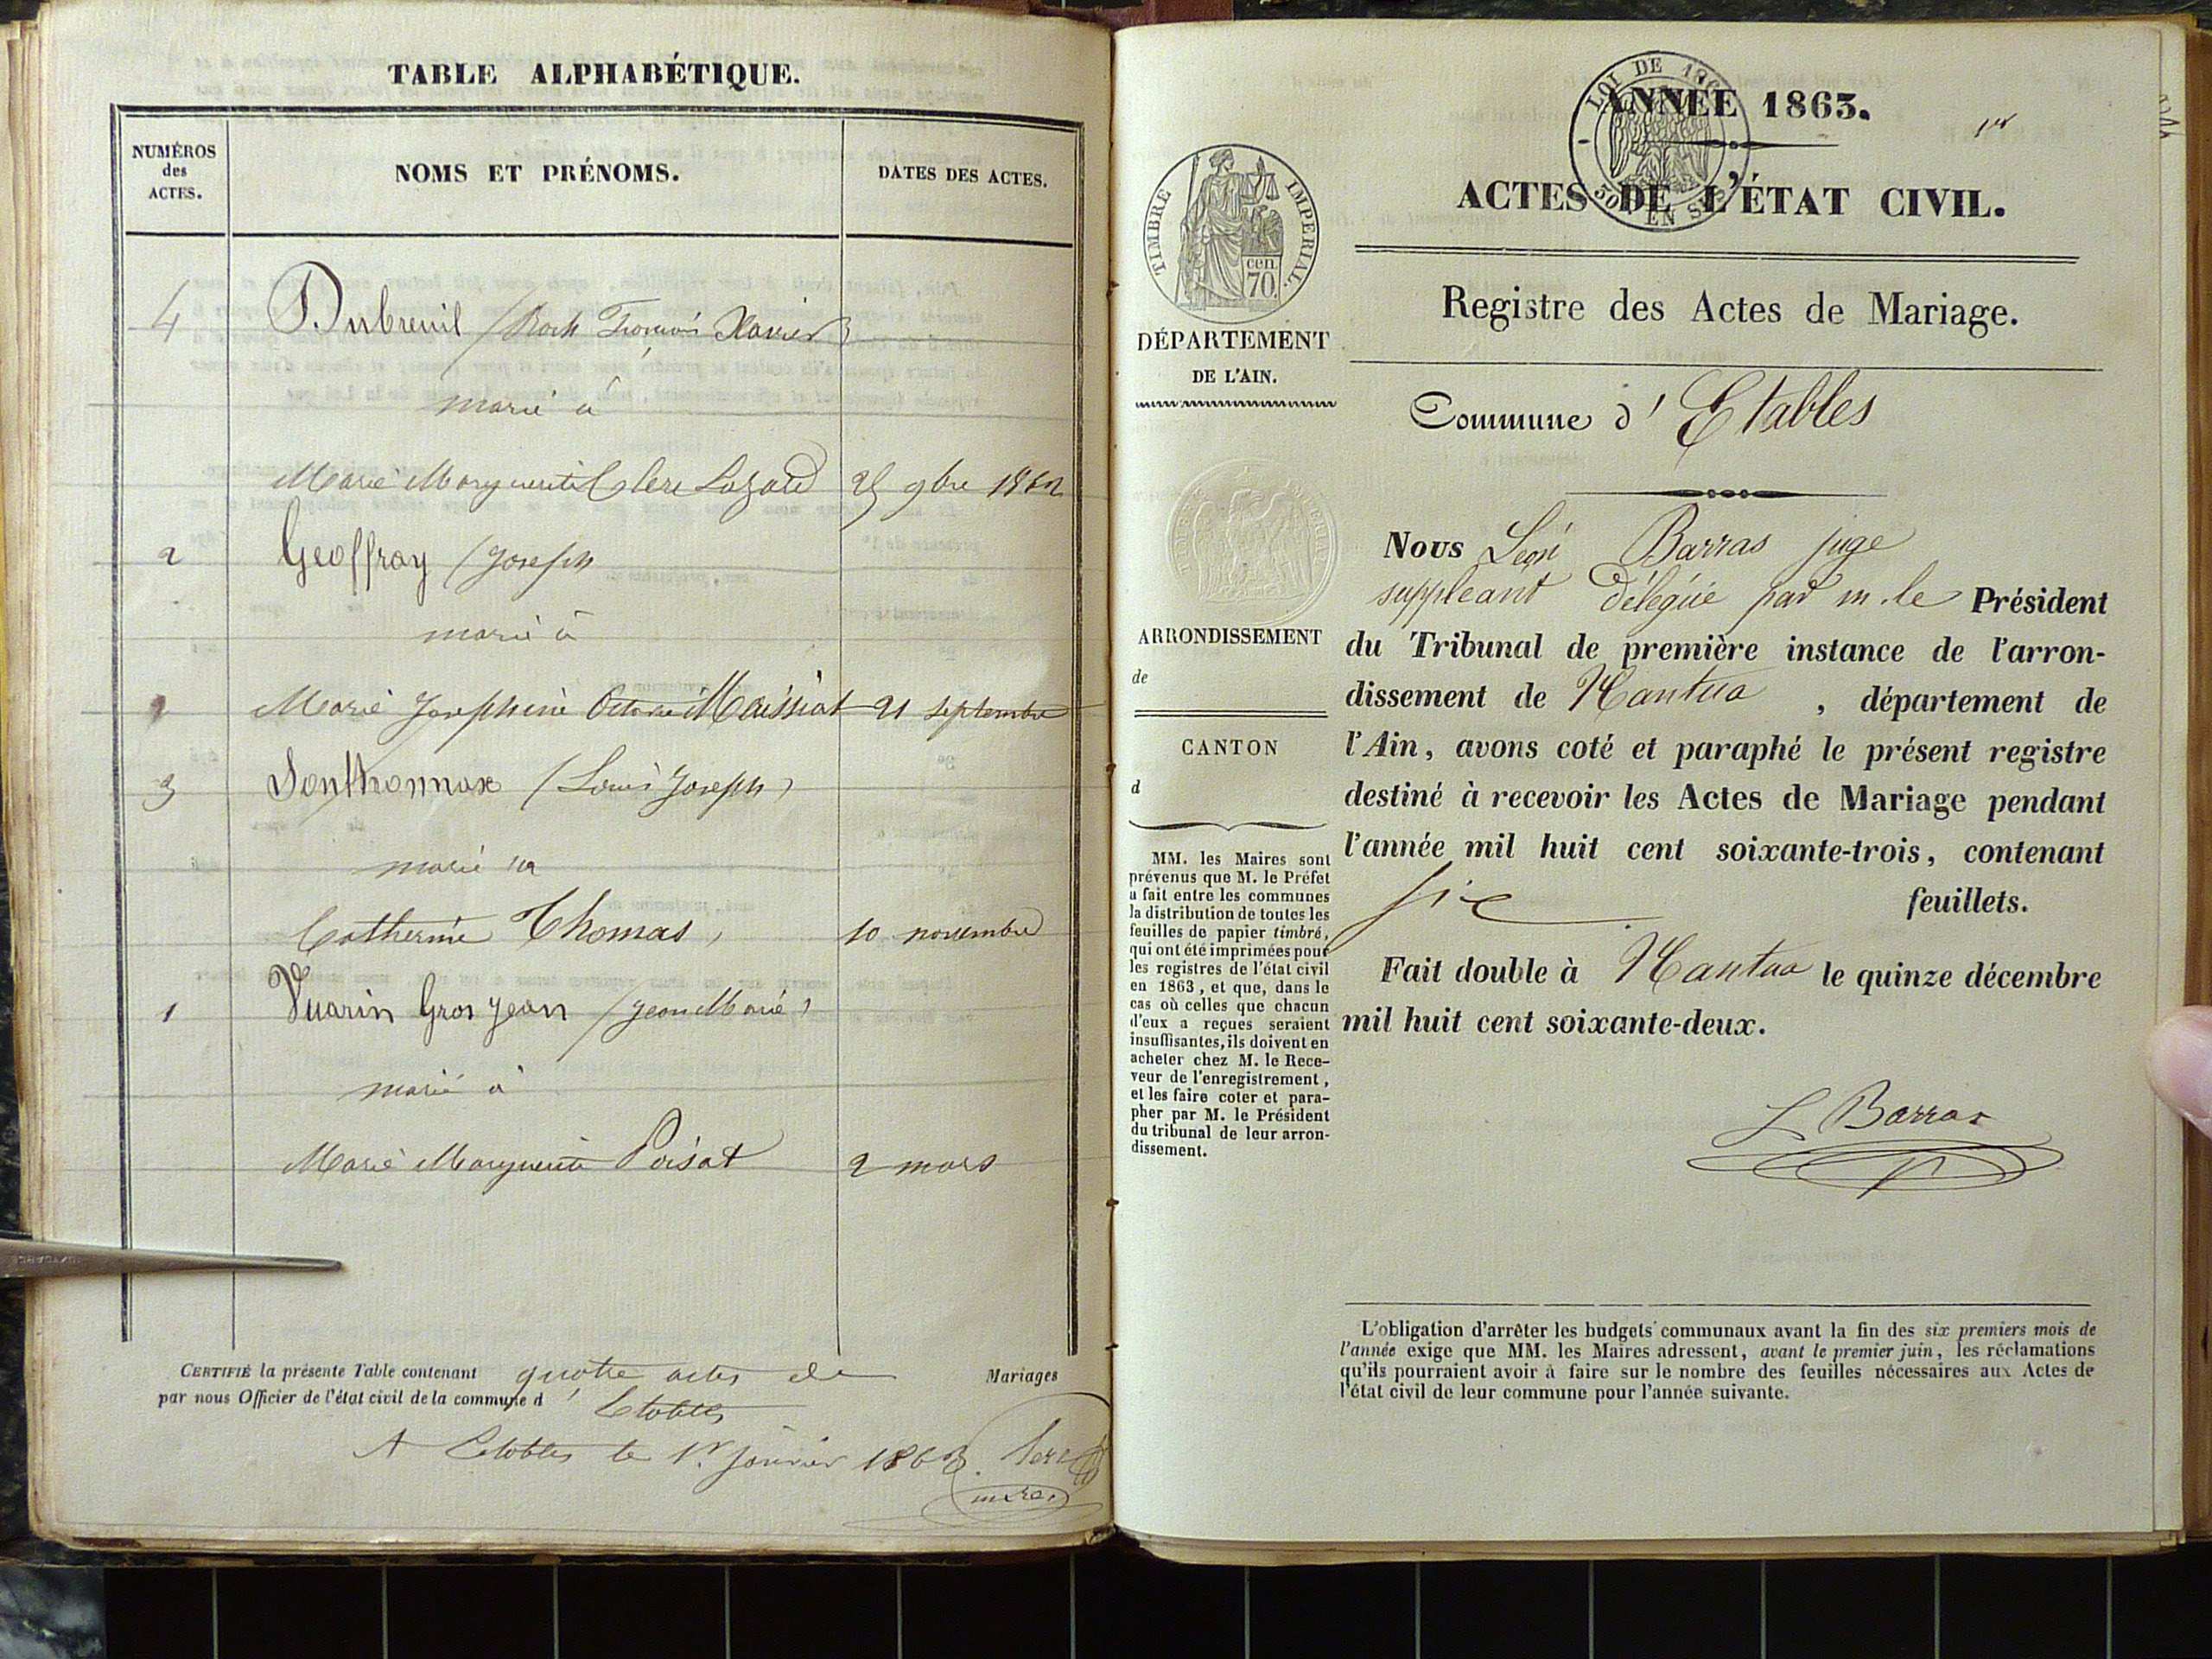 TABLE ALPHABÉTIQUE.
NUMÉROS
des
ACTES.
NOMS ET PRÉNOMS.
DATES DES ACTES.
4 Dubreuil (Roch François Xavier)
marié à
Marie Marguerite Clere Lazard 25 9bre 1862
2 Geoffray (Joseph
marié à
Marie Josephine Octavie Maissiat 21 septembre
3 Sonthonnax (Louis Joseph)
marié à
Catherine Thomas, 10 novembre
1 Vuarin Gros Jean (Jean Marie)
marié à
Marie Marguerite Poisat 2 mars
CERTIFIÉ la présente Table contenant quatre actes de Mariages
par nous Officier de l'état civil de la commune d' Etables
A Etables le 1er janvier 1863.
maire
ANNÉE 1863.
1er
LOI DE
50 EN SUS
ACTES DE L'ÉTAT CIVIL.
TIMBRE IMPERIAL.
cen.
70.
Registre des Actes de Mariage.
DÉPARTEMENT
DE L'AIN.
Commune d' Etables
Nous Léon Barras juge
suppléant délégué par m. le Président
ARRONDISSEMENT
de
du Tribunal de première instance de l'arron-
dissement de Nantua , département de
CANTON
d
l'Ain, avons coté et paraphé le présent registre
destiné à recevoir les Actes de Mariage pendant
l'année mil huit cent soixante-trois, contenant
six feuillets.
Fait double à Nantua le quinze décembre
mil huit cent soixante-deux.
L Barras
MM. les Maires sont
prévenus que M. le Préfet
a fait entre les communes
la distribution de toutes les
feuilles de papier timbré,
qui ont été imprimées pour
les registres de l'état civil
en 1863, et que, dans le
cas où celles que chacun
d'eux a reçues seraient
insuffisantes, ils doivent en
acheter chez M. le Rece-
veur de l'enregistrement,
et les faire coter et para-
pher par M. le Président
du tribunal de leur arron-
dissement.
L'obligation d'arrêter les budgets communaux avant la fin des six premiers mois de
l'année exige que MM. les Maires adressent, avant le premier juin, les réclamations
qu'ils pourraient avoir à faire sur le nombre des feuilles nécessaires aux Actes de
l'état civil de leur commune pour l'année suivante.